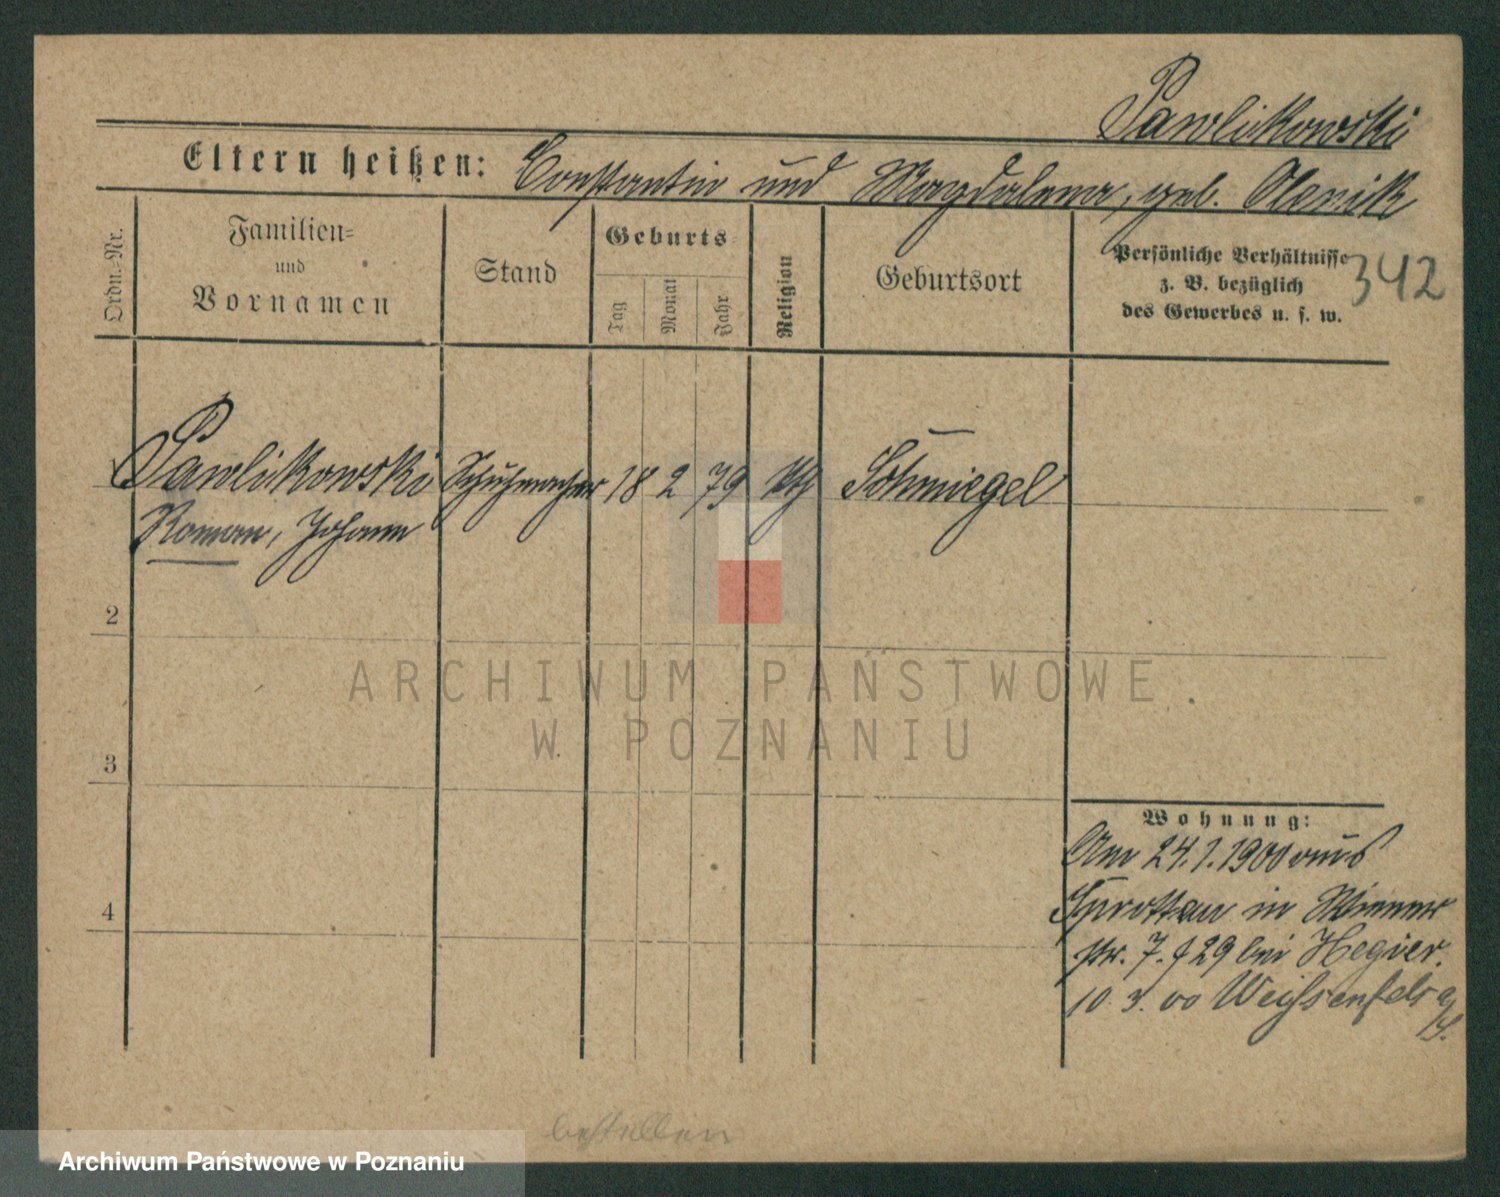 Pawlikowski
Eltern heißen: Constantin und Magdalena, geb. Olenik
Ordn.-Nr.
Familien-
und
Vornamen
Stand
Geburts-
Tag
Monat
Jahr
Religion
Geburtsort
Persönliche Verhältnisse
z. B. bezüglich
des Gewerbes u. s. w.
342
1 Pawlikowski Schuhmacher 18 2 79 kth Schmiegel
Roman, Johann
2
3
4
Wohnung:
Am 24.1.1900 aus
Sprottau in Wiener
str. 7. bei Hegier.
10. 3. 00 Weißenfels a/S.
bestellen
ARCHIWUM PAŃSTWOWE
W POZNANIU
Archiwum Państwowe w Poznaniu